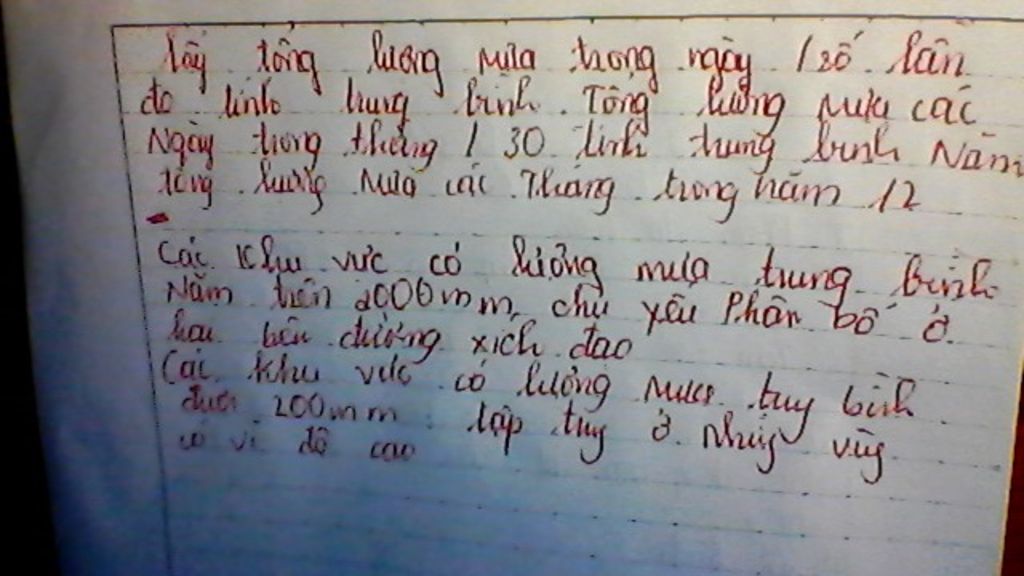 lấy tổng lượng mưa trong ngày / số lần
đo tính trung bình. Tổng lượng mưa các
Ngày trong tháng / 30 tính trung bình Năm
tổng lượng mưa các Tháng trong năm 12
Các khu vực có lượng mưa trung bình
Năm trên 2000mm, chủ yếu Phân bố ở
hai bên đường xích đạo
Các khu vức có lượng mưa tuy bình
dưới 200mm tập tuy ở nhưg vùg
có vĩ độ cao